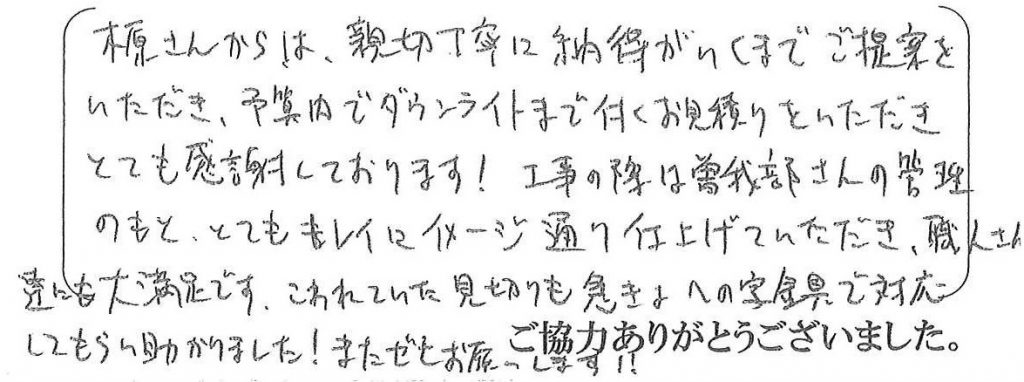 木原さんからは、親切丁寧に納得がいくまでご提案を
いただき、予算内でダウンライトまで付くお見積りをいただき
とても感謝しております! 工事の際は曽我部さんの管理
のもと、とてもキレイにイメージ通り仕上げていただき、職人さん
達にも大満足です。こわれていた見切りも急きょへの字金具で対応
してもらい助かりました!またぜひお願いします!!
ご協力ありがとうございました。